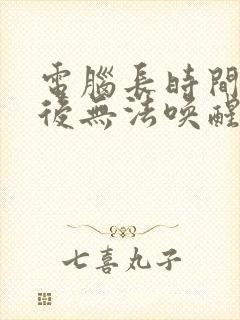 電腦長時間
後無法喚醒
七喜丸子